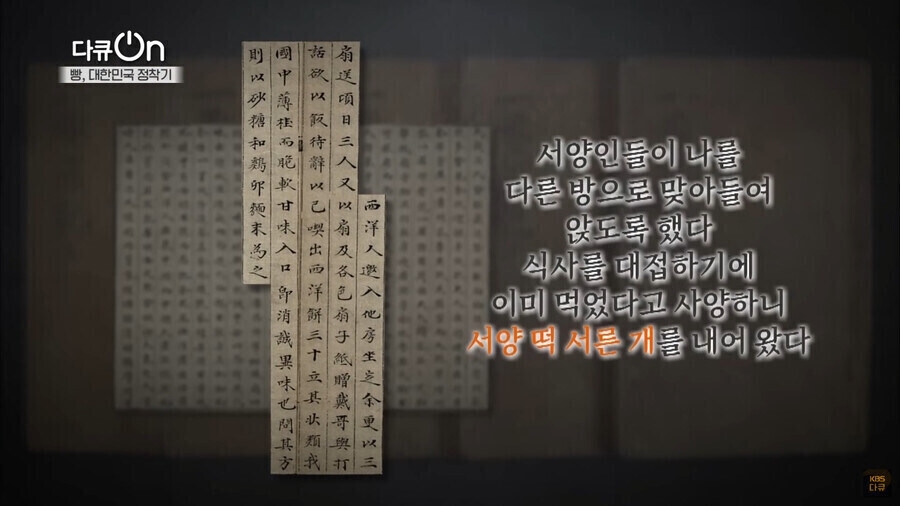 다큐On
빵, 대한민국 정착기
西洋人邀入他房坐定余更以三
扇送頃日三人又以扇及各色扇子紙贈戴哥與打
話欲以飯待辭以已喫出西洋餠三十立其狀類我
國中薄桂而脆軟甘味入口卽消誠異味也問其方
則以砂糖和鷄卵麵末為之
서양인들이 나를
다른 방으로 맞아들여
앉도록 했다
식사를 대접하기에
이미 먹었다고 사양하니
서양 떡 서른 개를 내어 왔다
KBS
다큐